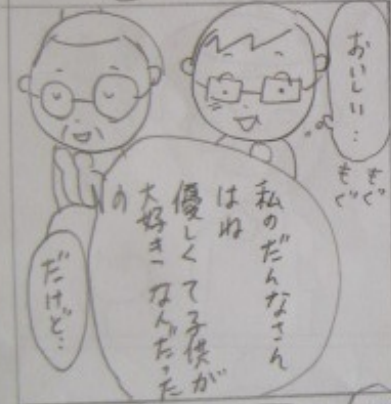 おいしい…
もぐ
もぐ
私のだんなさん
はね
優しくて子供が
大好きなんだった
の
だけど…